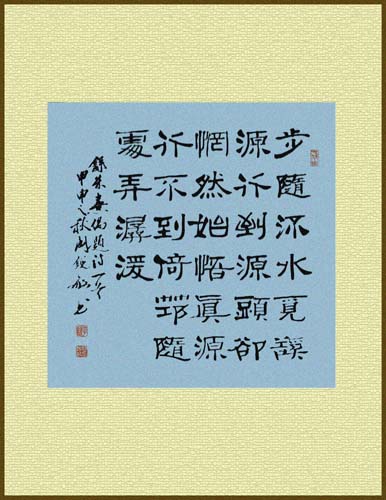 步隨流水覓谿
源行到源頭卻
惘然始悟眞源
行不到倚筇隨
處弄潺湲
錄朱熹偶題詩一首
甲申之秋 書